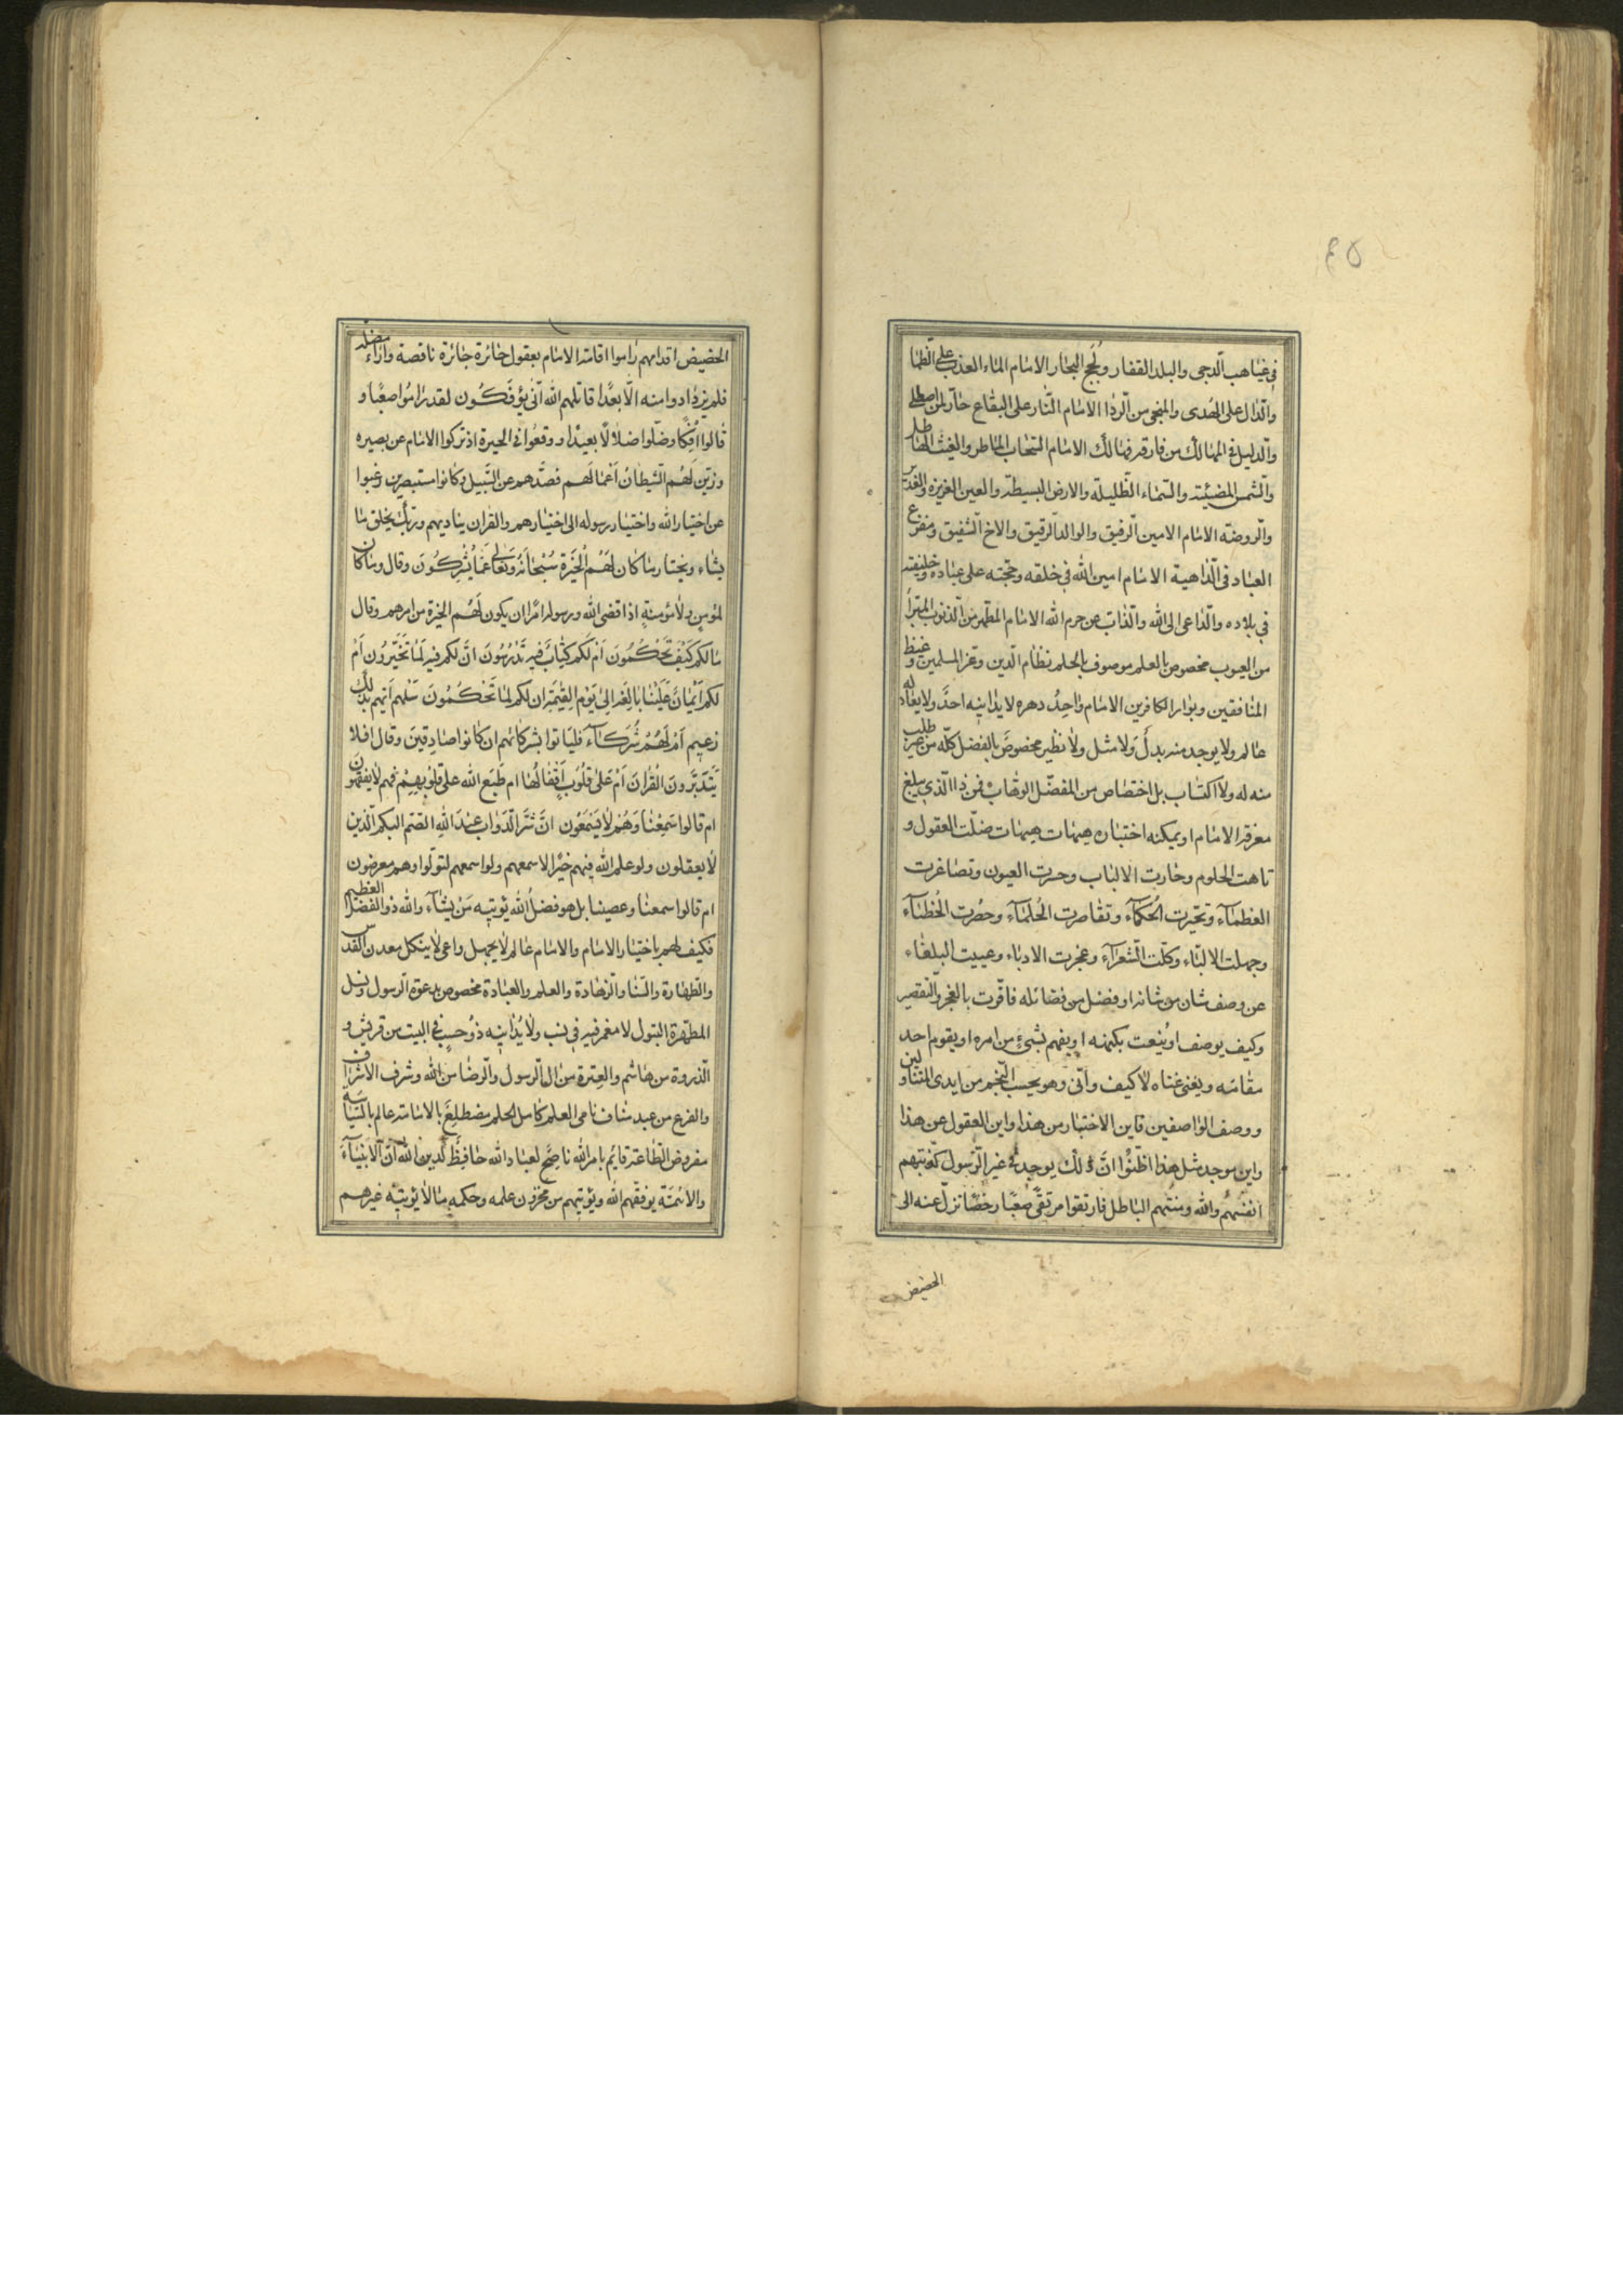 ٤٥
في غياهب الدجى والبلد القفار ولُجج البحار الامام الماء العذب على الظما
والدال على الهدى والمنجى من الردا الامام النار على البقاع حار لمن اصطلى
والدليل في المهالك من فارقه فهالك الامام السحاب الماطر والغيث الهاطل
والشمس المضيئة والسماء الظليلة والارض البسيطة والعين الغزيره والغدير
والروضه الامام الامين الرفيق والوالد الرقيق والاخ الشفيق ومفزع
العباد في الداهية الامام امين الله في خلقه وحجته على عباده وخليفته
في بلاده والداعى الى الله والذاب عن حرم الله الامام المطهر من الذنوب المبرأ
من العيوب مخصوص بالعلم موصوف بالحلم نظام الدين وعز المسلمين وغيظ
المنافقين وبوار الكافرين الامام واحِدُ دهره لا يدانيه احدٌ ولا يعادله
عالم ولا يوجد منه بدلٌ ولا مثل ولا نظير مخصوصٌ بالفضل كله من غير طلب
منه له ولا اكتساب بل اختصاص من المفضل الوهاب فمن ذا الذي يبلغ
معرفة الامام او يمكنه اختياره هيهات هيهات ضلت العقول و
تاهت الحلوم وحارت الالباب وحسرت العيون وتصاغرت
العظماء وتحيرت الحُكماء وتقاصرت الحُلماء وحصُرت الخُطباء
وجهلت الالباء وكلت الشعراء وعجزت الادباء وعييت البلغاء
عن وصف شان من شانه او فضل من فضائله فاقرت بالعجز والتقصير
وكيف يوصف او يُنعت بكنهه او يفهم بشيءٍ من امره او يقوم احد
مقامه ويغنى غناه لا كيف وانى وهو بحيث النجم من ايدى المتناولين
ووصف الواصفين فاين الاختيار من هذا واين العقول عن هذا
واين يوجد مثل هذا اظنُّوا انّ ذلك يوجد في غير الرسول كذبتهم
انفسُهُم والله ومنتهم الباطل فارتقوا مرتقىً صعبًا دحضًا تزلّ عنه الى
الحضيض
الحضيض اقدامهم راموا اقامة الامام بعقول حائرة جائرة ناقصة وآراء مضلة
فلم يزدادوا منه الّا بعدًا قاتلهم الله انّى يؤفكُون لقد راموا صعبًا و
قالوا اِفكًا وضلّوا ضلالًا بعيدًا ووقعوا في الحيرة اذ تركوا الامام عن بصيره
وزيّن لَهُم الشيطانُ اَعمالَهم فصدَّهم عن السَّبيل وكانوا مستبصرين رغبوا
عن اختيار الله واختيار رسوله الى اختيارهم والقران يناديهم وربّك يخلق ما
يشاء ويختار ما كان لَهُم الخَيَرة سُبحانَهُ وتعالى عمّا يُشركُونَ وقال وما كان
لمؤمنٍ ولا مؤمنةٍ اذا قضى الله ورسوله امرًا ان يكون لَهُم الخيرة من امرهم وقال
ما لكم كَيفَ تَحكُمُونَ اَم لكم كتابٌ فيه تَدرُسُونَ انّ لكم فيه لمَا تَخَيَّرُونَ اَم
لكم اَيمانٌ عَلينا بالغة الى يَوم القيمة ان لكم لما تَحكُمُونَ سَلهم اَيّهم بذلك
زعيم اَم لَهُم شُركاء فليَاتوا بشركائهم ان كانوا صادقينَ وقال افلا
يَتَدَبَّرونَ القُرانَ اَم على قلُوبٍ اَقفالُها ام طَبَع الله على قلوبهِم فهم لا يفقهون
ام قالوا سَمِعنا وَهُم لا يَسمَعُون انّ شرَّ الدوابّ عندَ اللهِ الصّم البكم الذين
لا يعقلون ولو علم الله فيهم خيرًا لاسمعهم ولو اسمعهم لتولّوا وهم معرضون
ام قالوا سمعنا وعصينا بل هو فضلُ الله يؤتيه مَن يشاء والله ذو الفضل العظيم
فكيف لهم باختيار الامام والامام عالم لا يجهل وراعى لا ينكل معدن القدس
والطهارة والسّنا والزهادة والعلم والعبادة مخصوص بدعوة الرسول ونسل
المطهّرة البتول لا مغمز فيه في نسب ولا يُدانيه ذُو حسبٍ في البيت من قريش و
الذروة من هاشم والعِترة من ال الرسول والرضا من الله وشرف الاشراف
والفرع من عبد مناف نامى العلم كامل الحلم مضطلِعٌ بالامامة عالم بالسياسة
مفروض الطاعة قائمٌ بامر الله ناصحٌ لعباد الله حافظٌ لدين الله انّ الانبياءَ
والائمّة يوفقهم الله ويؤتيهم من مخزون علمه وحكمه ما لا يؤتيه غيرهم